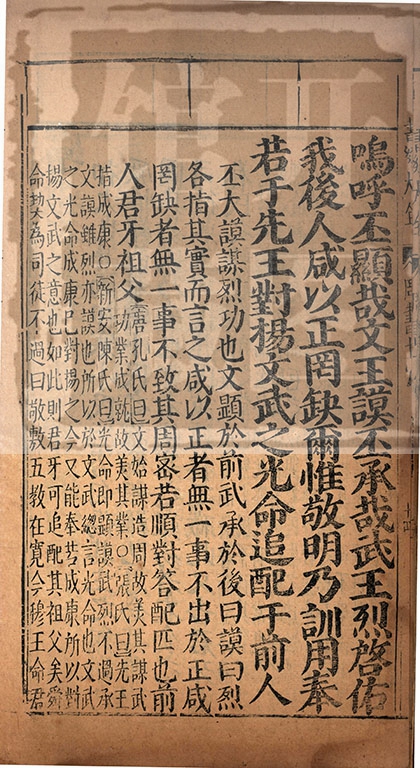 嗚呼丕顯哉文王謨丕承哉武王烈啓佑
我後人咸以正罔缺爾惟敬明乃訓用奉
若于先王對揚文武之光命追配于前人
丕大謨謀烈功也文顯於前武承於後曰謨曰烈
各指其實而言之咸以正者無一事不出於正咸
罔缺者無一事不致其周密若順對答配匹也前
人君牙祖父
唐孔氏曰文始謀造周故美其謀武
功業成就故美其業○張氏曰先王
指成康○新安陳氏曰光命即顯謨武烈不過承
文謨雖烈亦謨也所以於文武總言光命也文武
之光命成康已對揚之今又能奉若成康所以對
揚文武之意也如此則君牙可追配其祖父矣舜
命契為司徒不過曰敬敷五教在寬今穆王命君